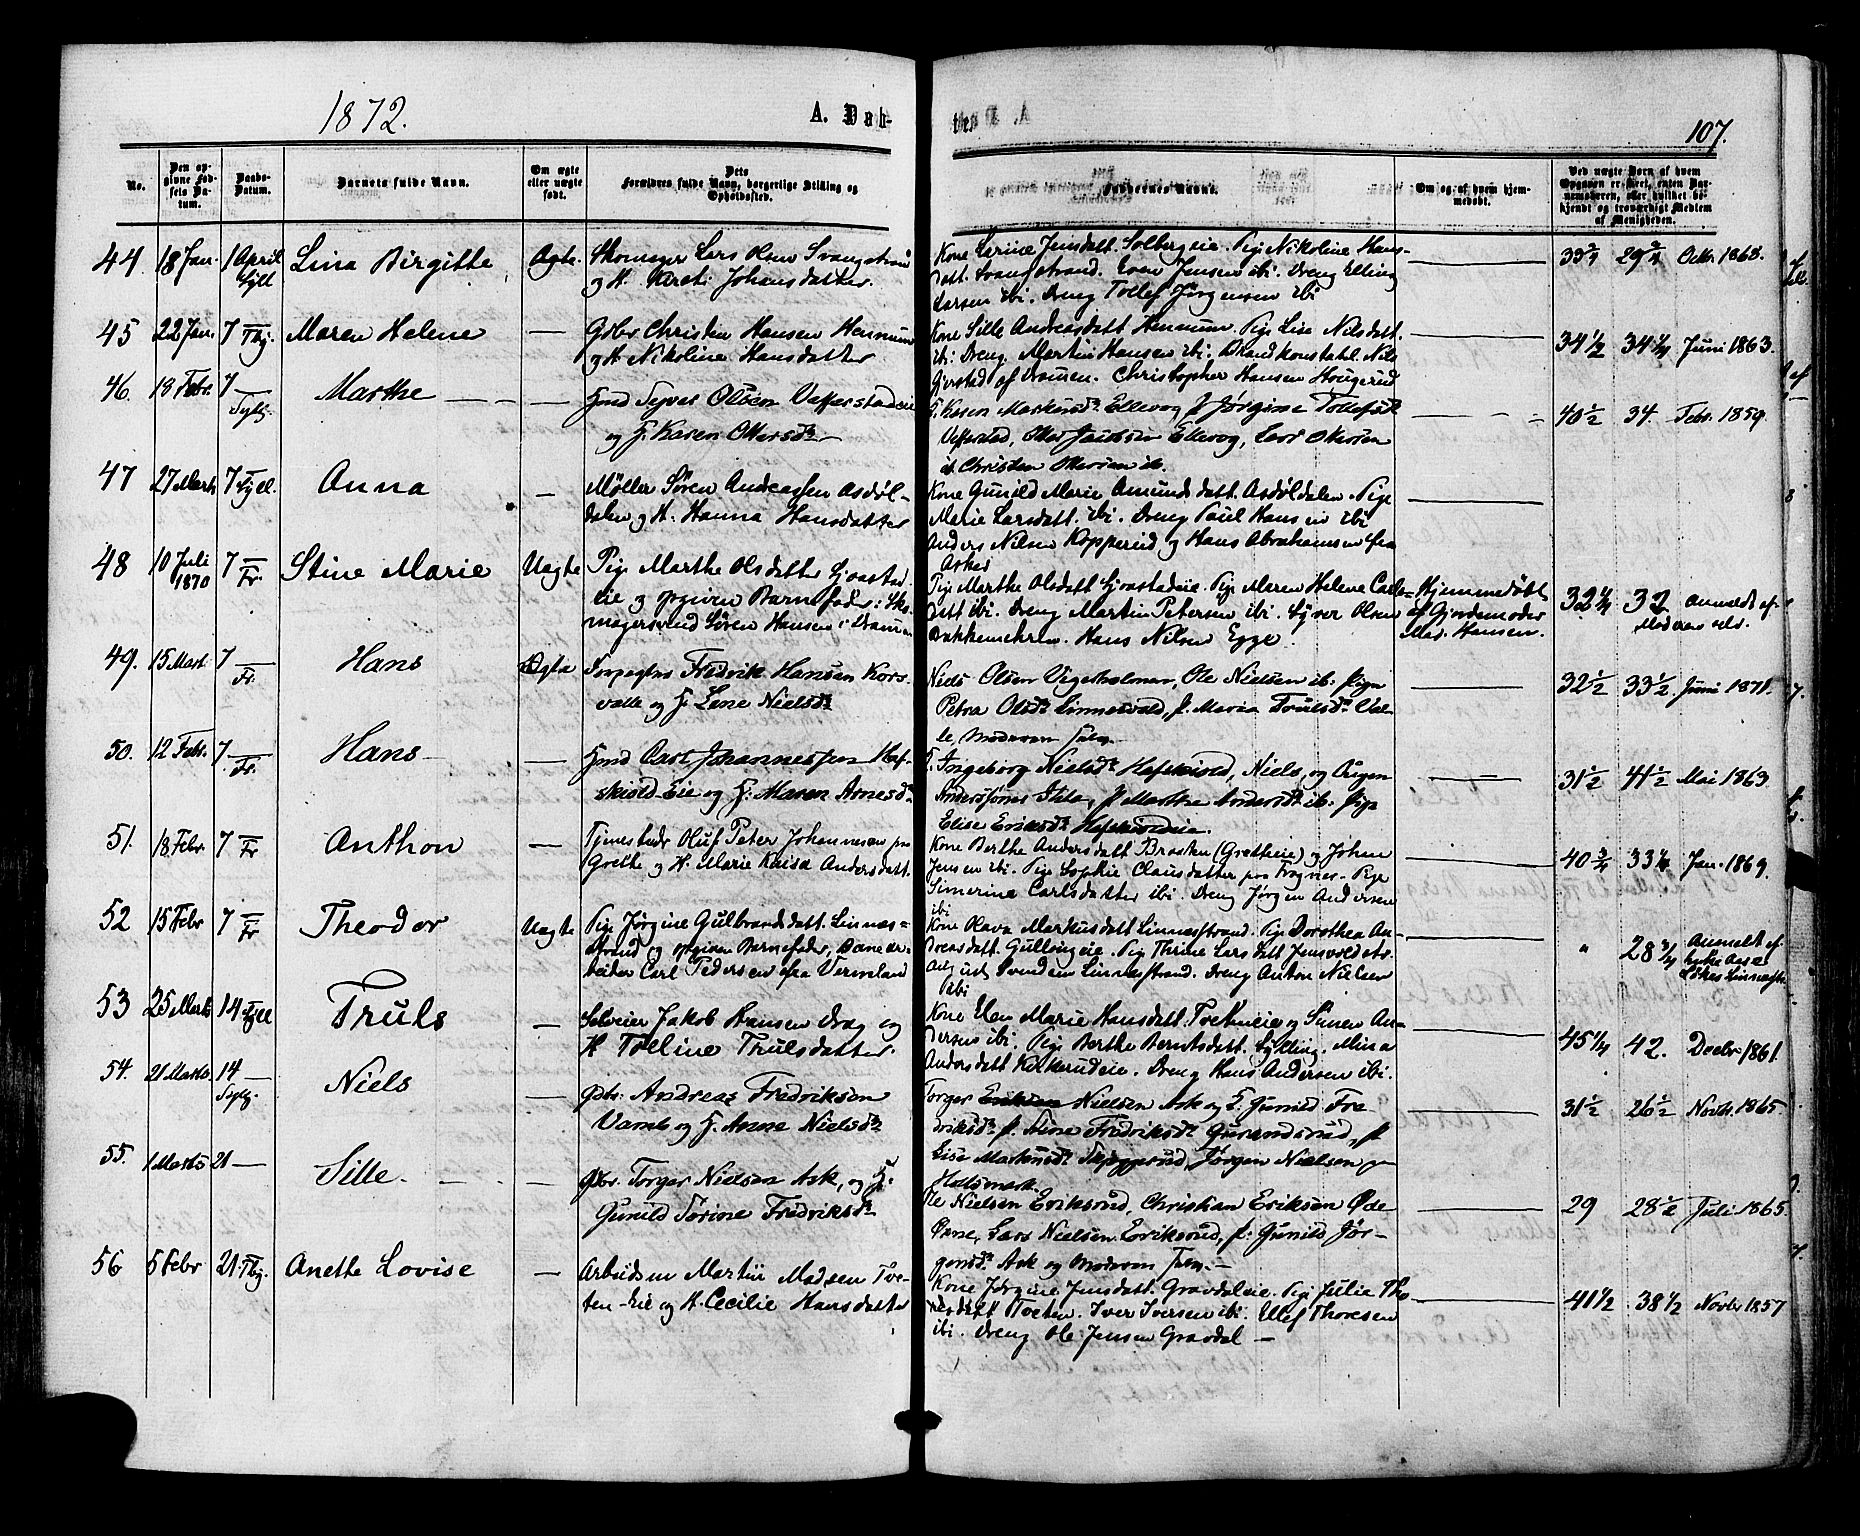 1872.
A. Døb-
te.
107.
No.
Den opgivne Fødsels Datum.
Daabs-Datum.
Barnets fulde Navn.
Om ægte eller uægte født.
Dets Forældres fulde Navn, borgerlige Stilling og Opholdssted.
Faddernes Navne.
Om og af hvem hjemmedøbt.
44. 18 Jan. 1 April Sjll Lina Birgitte Ægte.
Skomager Lars Olsen Svangstrand
og H. Kirsti Johansdatter.
Kone Karine Jensdatt. Solbergeie. Pige Nikoline Hans-
datt. Svangstrand. Even Jensen ibi. Dreng Elling
Larsen ibi. Dreng Tollef Jørgensen ibi
33 3/4 29 3/4 Octbr. 1868.
45 22 Jan. 7 — Maren Helene —
Gbr Christen Hansen Hennum
og H. Nikoline Hansdatter
Kone Sille Andreasdatt Hennum. Pige Lise Nilsdatt.
ibi. Dreng Martin Hansen ibi. Nils
Gjersted af Dramen. Christopher Hansen Hougerud
34 1/2 34 1/4 Juni 1863.
46. 18 Febr. 7 — Marthe —
Hmd Syver Olsen Veffersta
og H. Karen Ottersd.
K. Karen Markusd. Ellevog, P. Jørgine Tollefsd.
Vefferstad, Otter Jacobsen Ellevog, Lars Ottersen
ib. Christen Ottersen ib.
40 1/2 34. Febr. 1859.
47 27 Marts 7 Sjll. Anna —
Møller Søren Andreassen Asdøl-
dalen og H. Hanna Hansdatter
Kone Gunild Marie Amundsdatt. Asdøldalen. Pige
Marie Larsdatt. ibi. Dreng Paul Hansen ibi
Anders Nilsen Kopperud og Hans Abrahamsen fra
Asker
48 10 Juli 1870 7 Fr. Stine Marie Uægte
Pige Marthe Olsdatter Gjorstad
eie og opgiven Barnefader: Sko-
magersvend Søren Hansen i Dramen
Pige Marthe Olsdatt Gjorstadeie. Pige Maren Helene Carls-
datt ibi. Dreng Martin Petersen ibi. Syver Olsen
Bakkenehren. Hans Nilsen Egge
Hjemmedøbt
af Gjordemoder
Mad. Hansen.
32 1/4 32 Anmeldt af
Moderen selv.
49. 15 Mart. 7 — Fr. Hans Ægte
Forpagter Fredrik Hansen Kors
valle og H. Lene Nielsd.
Niels Olsen Vegesholmen, Ole Nielsen ib. Pigen
Petra Olsd. Linnesvald, P. Maria Trulsd. Val-
le, Moderen selv.
32 1/2 33 1/2 Juni 1871.
50. 12 Febr. 7 — Fr. Hans —
Hmd Carl Johannessen Haf-
skjold-Eie og H. Maren Arnesd.
K. Ingeborg Nielsd. Hafskjold, Niels, og Augen
Elise Eriksd. Hafskjoldeie.
31 1/2 41 1/2 Mai 1863.
51. 18 Febr 7 Fr Anthon —
Tjenestedr Oluf Peter Johannesen paa
Grette og H. Marie Kaisa Andersdatt.
Kone Berthe Andersdatt Braaten (Gretteeie) og Johan
Jensen ibi. Pige Sophie Clausdatter paa Frognes. Pige
Simerine Carlsdatter ibi. Dreng Jørgen Andersen
ibi
40 3/4 33 1/4 Jan. 1869.
52 15 Febr 7 Fr Theodor Uægte
Pige Jørgine Gulbrandsdatt. Linnæs-
strand og opgiven Barnefader, Banear-
beider Carl Pedersen fra Vermland
Kone Olava Markusdatt Linnæsstrand. Pige Dorothea An-
dreasdatt. Gullaugeie. Pige Thrine Larsdatt Jensvoldets.
Svendsen Linnæsstrand. Dreng Anton Nielsen
ibi
" 28 3/4 Anmeldt af
53 25 Marts 14 Sjll Truls —
Selveier Jakob Hansen Drag og
H Tolline Trulsdatter.
Kone Elen Marie Hansdatt. Tveteneie og Simen An-
dersen ibi. Pige Berthe Berntsdatt. Sylling. Mina
Andersdatt Kirkerudeie. Dreng Hans Andersen ibi.
45 1/4 42. Decbr 1861.
54. 21 Marts 14 — Niels —
Gbr. Andreas Fredriksen
Vamb og H. Anne Nielsd.
Torger Nielsen Ask og K. Gunild Fre-
driksd. P. Anne Fredriksd. Gunnerudsrud, P.
Lise Markusd. Jørgen Nielsen
31 1/2 26 1/2 Novbr. 1865.
55. 1 Marts 21 — Sille. —
Gbr. Torger Nielsen Ask, og H.
Gunild Torine Fredriksd.
Ole Nielsen Eriksrud, Christian Eriksen Øde
Lars Nielsen Eriksrud, P. Gunild Jør-
gensd. Ask og Moderen selv.
29 28 1/2 Juli 1865.
56 5 Febr 21. Anette Lovise —
Arbeidsm Martin Madsen Tve-
ten-eie og H. Cecilie Hansdatter
Kone Jørgine Jensdatt. Gravdaleie. Pige Julie Tho-
resdatt Tveten. Iver Iversen ibi. Ellef Thoresen
ibi. Dreng Ole Jensen Gravdal —
41 1/2 38 1/2 Novbr 1857